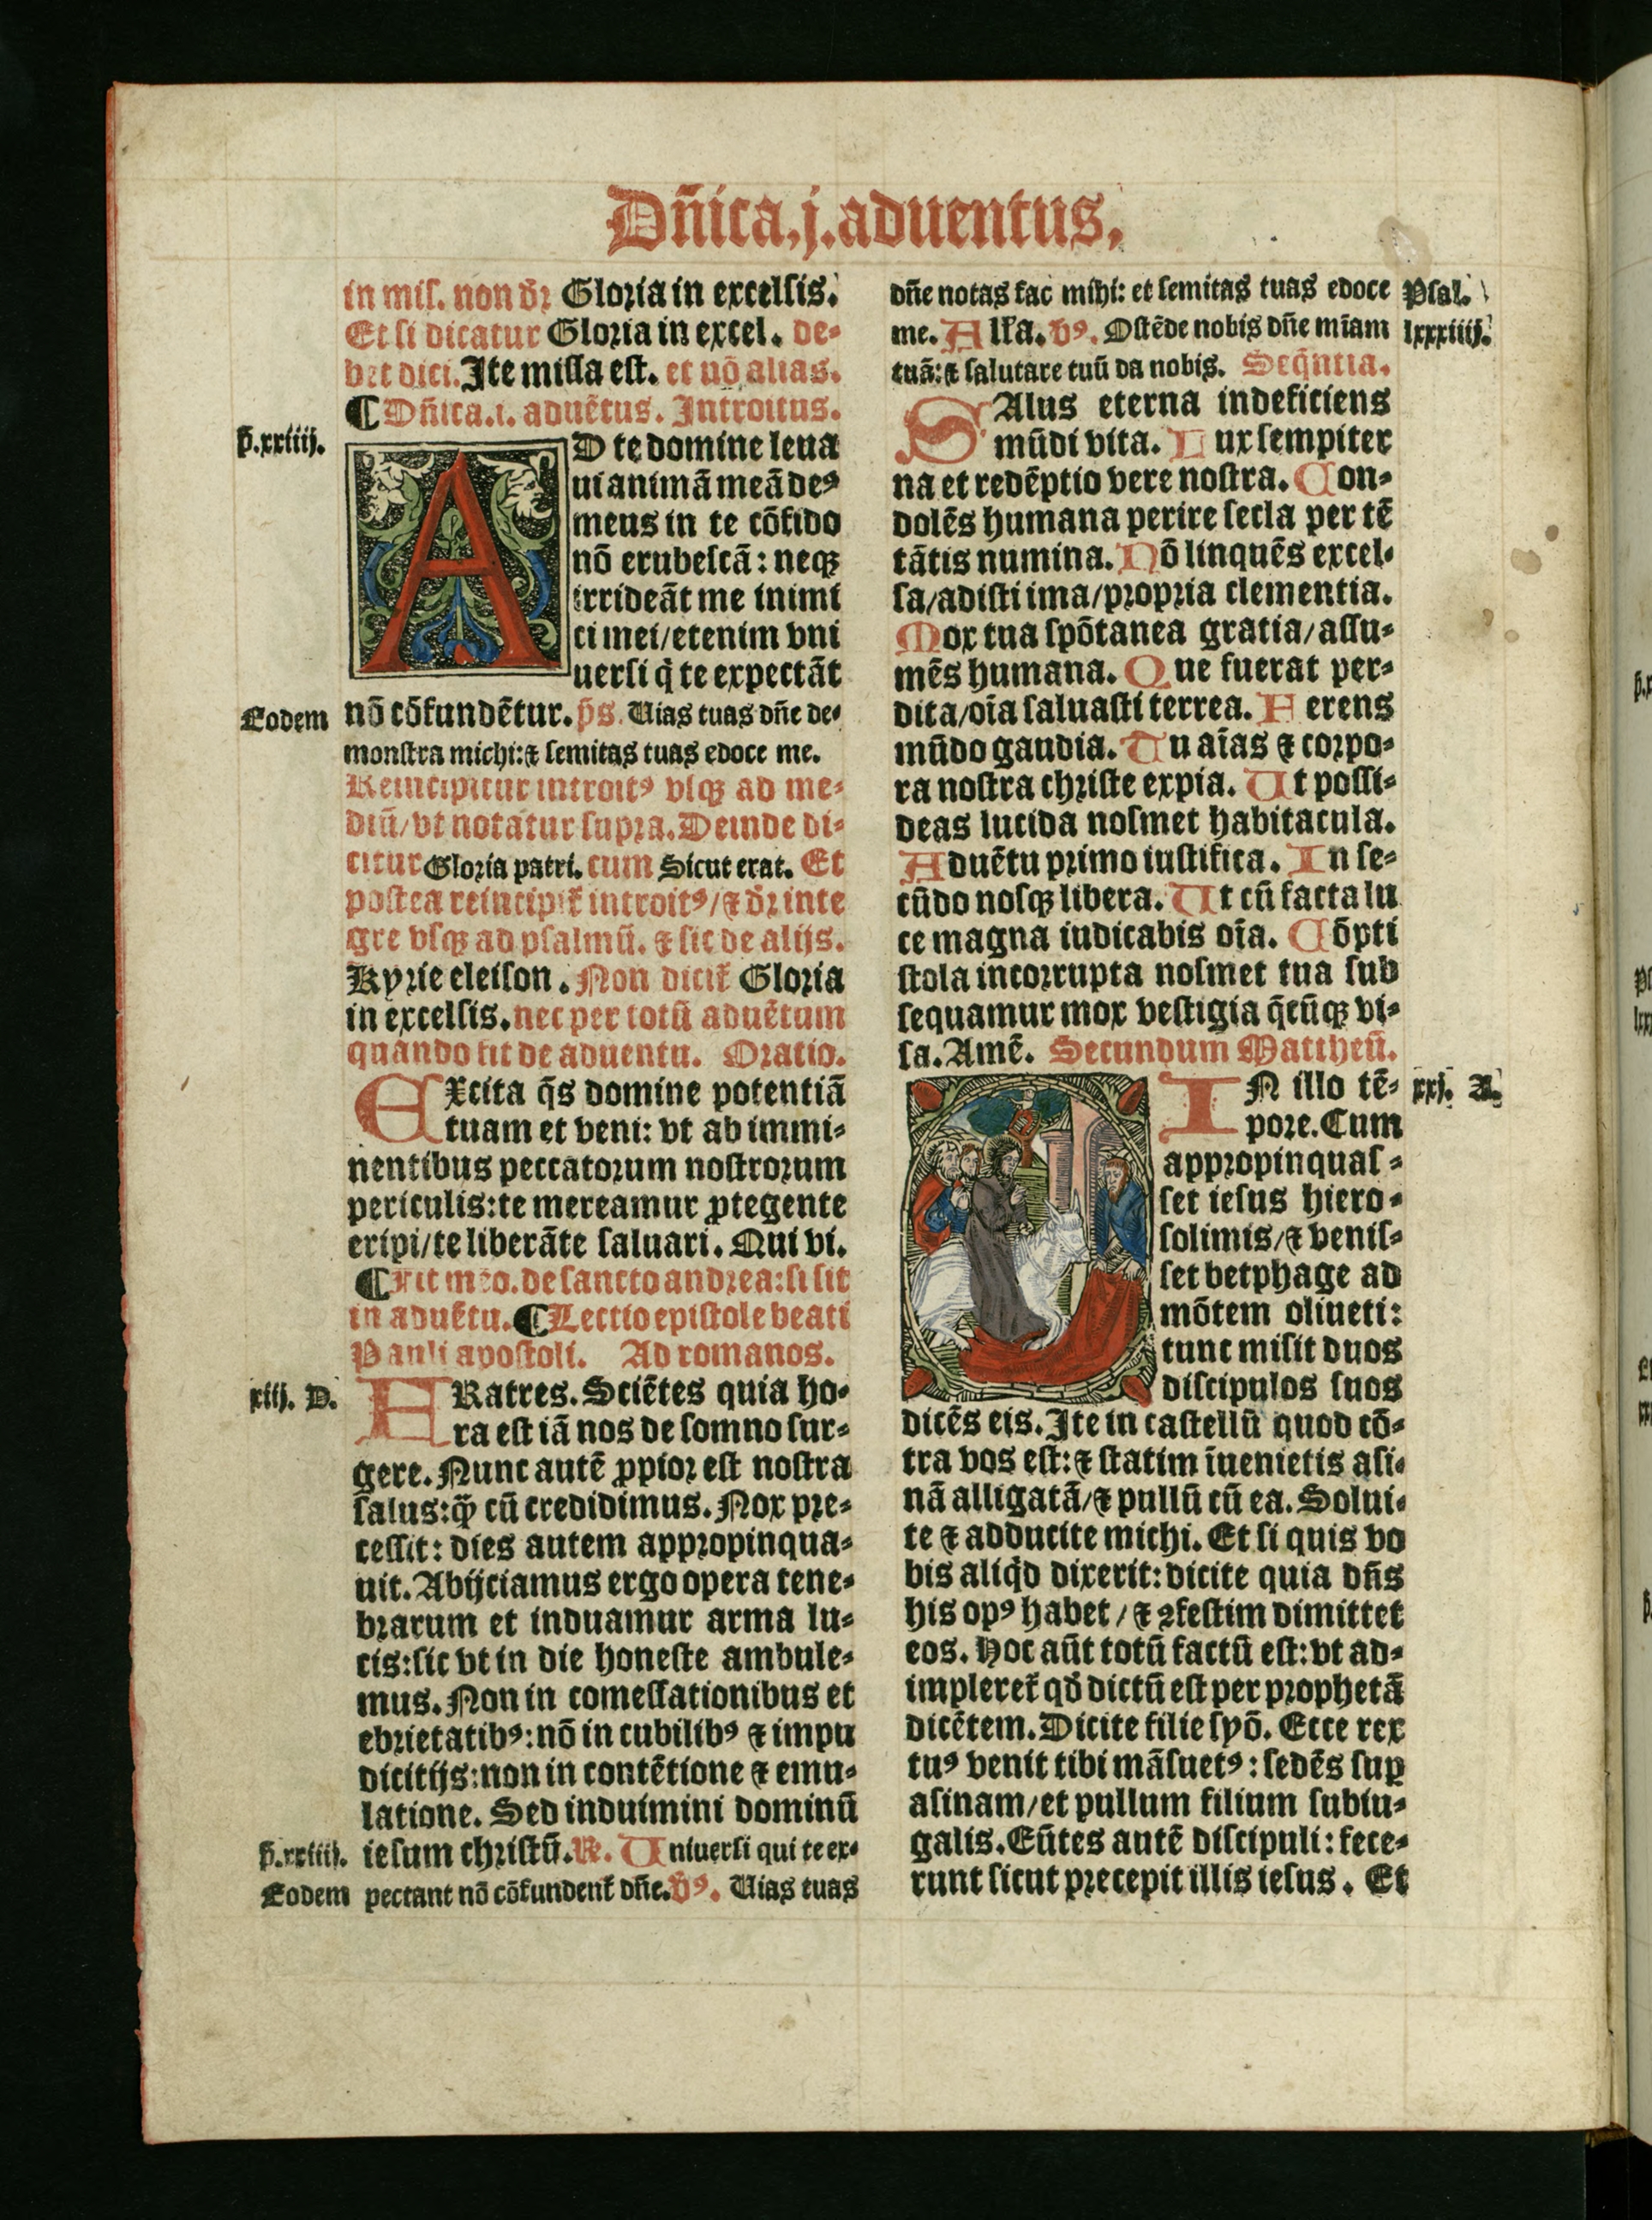 Dñica.j.aduentus.
in miſ. non dr̃ Gloria in excelſis.
Et ſi dicatur Gloria in excel. de⸗
bet dici. Ite miſſa eſt. et nõ alias.
¶ Dñica.i. aduẽtus. Introitus.
p̃.xxiiij.
AD te domine leua
ui animã meã deꝰ
meus in te cõfido
nõ erubeſcã: neqꝫ
irrideãt me inimi
ci mei/etenim vni
uerſi q̇ te expectãt
Eodem
nõ cõfundẽtur. p̃s. Uias tuas dñe de⸗
monſtra michi:⁊ ſemitas tuas edoce me.
Reincipitur introitꝰ vſqꝫ ad me⸗
diũ/vt notatur ſupra. Deinde di⸗
citur Gloria patri. cum Sicut erat. Et
poſtea reincipit̃ introitꝰ/⁊ dr̃ inte
gre vſqꝫ ad pſalmũ. ⁊ ſic de alijs.
Kyrie eleiſon. Non dicit̃ Gloria
in excelſis. nec per totũ aduẽtum
quando fit de aduentu. Oratio.
EXcita q̃s domine potentiã
tuam et veni: vt ab immi⸗
nentibus peccatorum noſtrorum
periculis:te mereamur ꝓtegente
eripi/te liberãte ſaluari. Qui vi.
¶ Fit mẽo. de ſancto andrea:ſi ſit
in aduẽtu. ¶ Lectio epiſtole beati
Pauli apoſtoli. Ad romanos.
xiij. D.
FRatres. Sciẽtes quia ho⸗
ra eſt iã nos de ſomno ſur⸗
gere. Nunc autẽ ꝓpior eſt noſtra
ſalus:ꝙ̃ cũ credidimus. Nox pre⸗
ceſſit: dies autem appropinqua⸗
uit. Abijciamus ergo opera tene⸗
brarum et induamur arma lu⸗
cis:ſic vt in die honeſte ambule⸗
mus. Non in comeſſationibus et
ebrietatibꝰ:nõ in cubilibꝰ ⁊ impu
dicitijs:non in contẽtione ⁊ emu⸗
latione. Sed induimini dominũ
p̃.xxiiij.
ieſum chriſtũ. R̃. Uniuerſi qui te ex⸗
Eodem
pectant nõ cõfundent̃ dñe. v̾ꝰ. Uias tuas
dñe notas fac mihi: et ſemitas tuas edoce
Pſal.
me. Alľa. v̾ꝰ. Oſtẽde nobis dñe mĩam
lxxxiiij.
tuã:⁊ ſalutare tuũ da nobis. Seq̃ntia.
SAlus eterna indeficiens
mũdi vita. Lux ſempiter
na et redẽptio vere noſtra. Con⸗
dolẽs humana perire ſecla per tẽ
tãtis numina. Nõ linquẽs excel⸗
ſa/adiſti ima/propria clementia.
Mox tua ſpõtanea gratia/aſſu⸗
mẽs humana. Que fuerat per⸗
dita/oĩa ſaluaſti terrea. Ferens
mũdo gaudia. Tu aĩas ⁊ corpo⸗
ra noſtra chriſte expia. Ut poſſi⸗
deas lucida noſmet habitacula.
Aduẽtu primo iuſtifica. In ſe⸗
cũdo noſqꝫ libera. Ut cũ facta lu
ce magna iudicabis oĩa. Cõpti
ſtola incorrupta noſmet tua ſub
ſequamur mox veſtigia q̃cũqꝫ vi⸗
ſa. Amẽ. Secundum Mattheũ.
IN illo tẽ⸗
xxj. A.
pore. Cum
appropinquaſ⸗
ſet ieſus hiero⸗
ſolimis/⁊ veniſ⸗
ſet betphage ad
mõtem oliueti:
tunc miſit duos
diſcipulos ſuos
dicẽs eis. Ite in caſtellũ quod cõ⸗
tra vos eſt:⁊ ſtatim ĩuenietis aſi⸗
nã alligatã/⁊ pullũ cũ ea. Solui⸗
te ⁊ adducite michi. Et ſi quis vo
bis aliq̇d dixerit: dicite quia dñs
his opꝰ habet/⁊ ꝯfeſtim dimittet
eos. Hoc aũt totũ factũ eſt: vt ad⸗
impleret̃ qd̾ dictũ eſt per prophetã
dicẽtem. Dicite filie ſyõ. Ecce rex
tuꝰ venit tibi mãſuetꝰ: ſedẽs ſuꝑ
aſinam/et pullum filium ſubiu⸗
galis. Eũtes autẽ diſcipuli: fece⸗
runt ſicut precepit illis ieſus. Et